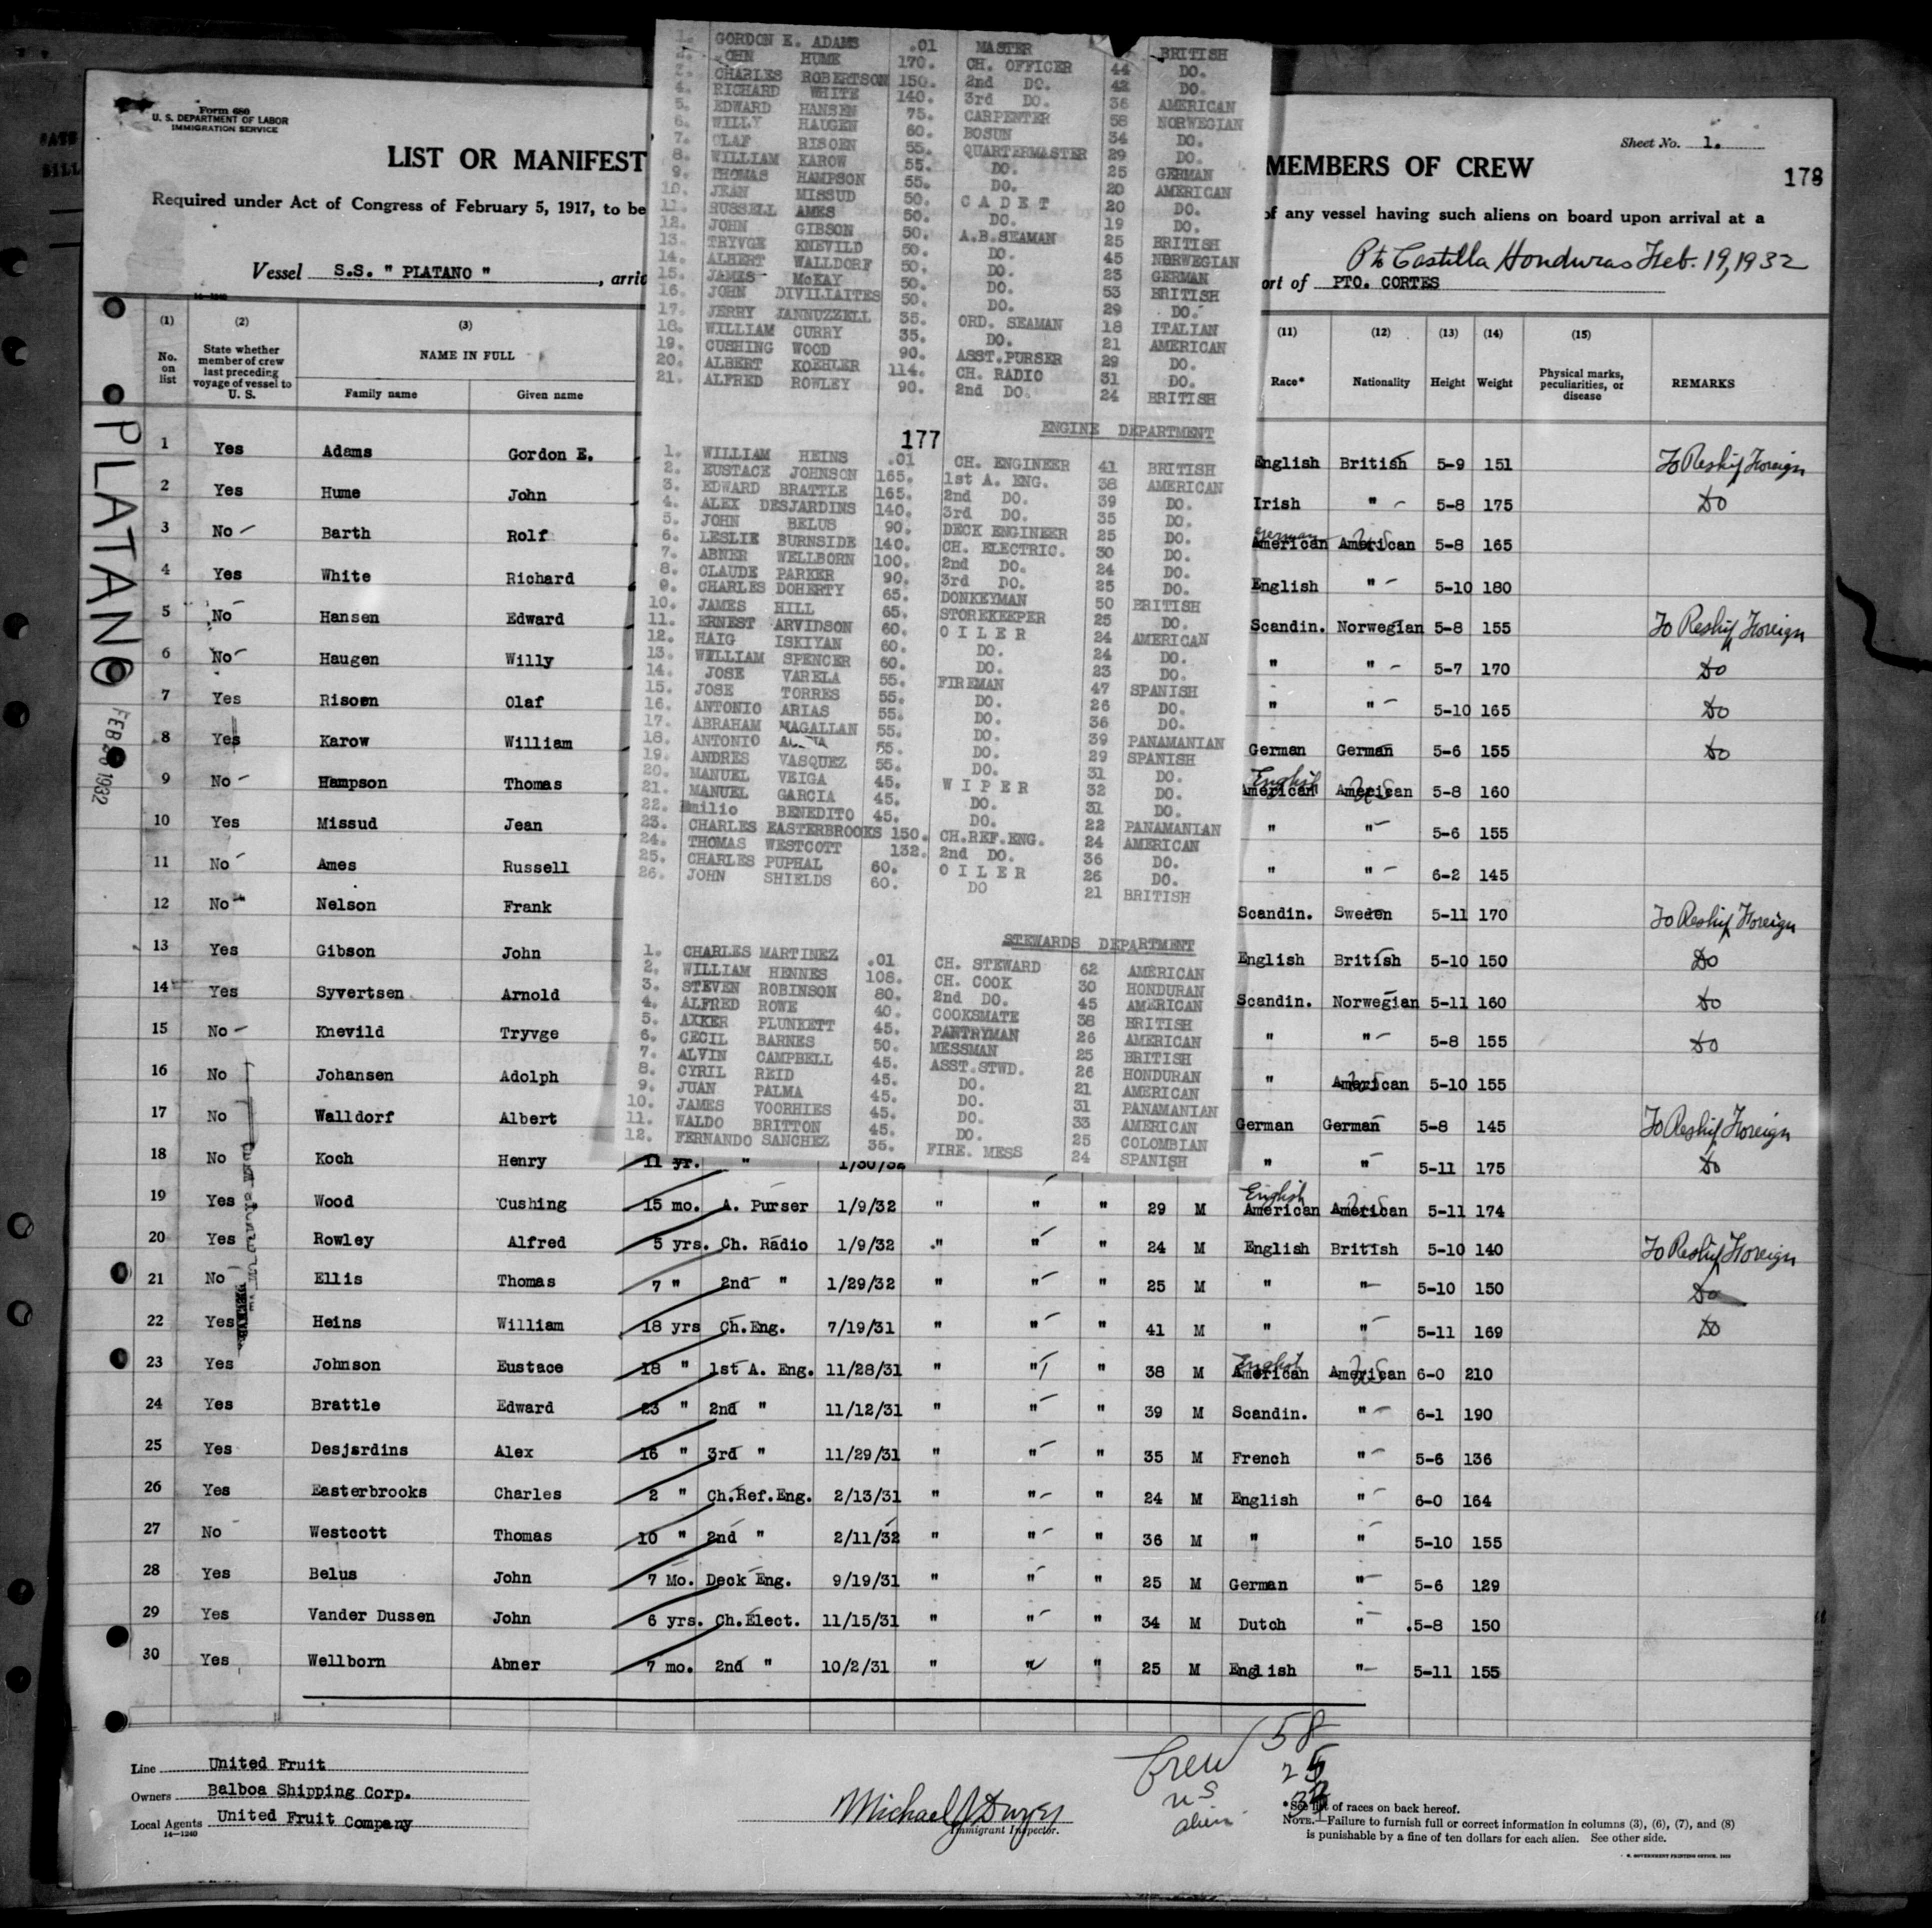 Form 680
U. S. DEPARTMENT OF LABOR
IMMIGRATION SERVICE
Sheet No. 1.
LIST OR MANIFEST MEMBERS OF CREW
178
Required under Act of Congress of February 5, 1917, to be of any vessel having such aliens on board upon arrival at a
Pto Castilla Honduras Feb. 19, 1932
Vessel S.S. " PLATANO " , arri ort of PTO. CORTES
PLATANO
FEB 1932
1. GORDON E. ADAMS .01 MASTER BRITISH
2. JOHN HUME 170. CH. OFFICER 44 DO.
CHARLES ROBERTSON 150. 2nd DO. 42 DO.
4. RICHARD WHITE 140. 3rd DO. 36 AMERICAN
5. EDWARD HANSEN 75. CARPENTER 58 NORWEGIAN
6. WILLY HAUGEN 60. BOSUN 34 DO.
7. OLAF RISOEN 55. QUARTERMASTER 29 DO.
8. WILLIAM KAROW 55. DO. 25 GERMAN
9. THOMAS HAMPSON 55. DO. 20 AMERICAN
10. JEAN MISSUD 50. CADET 20 DO.
11. RUSSELL AMES 50. DO. 19 DO.
12. JOHN GIBSON 50. A.B.SEAMAN 25 BRITISH
13. TRYVGE KNEVILD 50. DO. 45 NORWEGIAN
14. ALBERT WALLDORF 50. DO. 23 GERMAN
15. JAMES McKAY 50. DO. 53 BRITISH
16. JOHN DIVILIAITES 50. DO. 29 DO.
17. JERRY IANNUZZELL 35. ORD. SEAMAN 18 ITALIAN
18. WILLIAM CURRY 35. DO. 21 AMERICAN
19. CUSHING WOOD 90. ASST.PURSER 29 DO.
20. ALBERT KOEHLER 114. CH. RADIO 31 DO.
21. ALFRED ROWLEY 90. 2nd DO. 24 BRITISH
177
ENGINE DEPARTMENT
1. WILLIAM HEINS .01 CH. ENGINEER 41 BRITISH
2. EUSTACE JOHNSON 165. 1st A. ENG. 38 AMERICAN
3. EDWARD BRATTLE 165. 2nd DO. 39 DO.
4. ALEX DESJARDINS 140. 3rd DO. 35 DO.
5. JOHN BELUS 90. DECK ENGINEER 25 DO.
6. LESLIE BURNSIDE 140. CH. ELECTRIC. 30 DO.
7. ABNER WELLBORN 100. 2nd DO. 24 DO.
8. CLAUDE PARKER 90. 3rd DO. 25 DO.
9. CHARLES DOHERTY 65. DONKEYMAN 50 BRITISH
10. JAMES HILL 65. STOREKEEPER 25 DO.
11. ERNEST ARVIDSON 60. OILER 24 AMERICAN
12. HAIG ISKIYAN 60. DO. 24 DO.
13. WILLIAM SPENCER 60. DO. 23 DO.
14. JOSE VARELA 55. FIREMAN 47 SPANISH
15. JOSE TORRES 55. DO. 26 DO.
16. ANTONIO ARIAS 55. DO. 36 DO.
17. ABRAHAM MAGALLAN 55. DO. 39 PANAMANIAN
18. ANTONIO 55. DO. 29 SPANISH
19. ANDRES VASQUEZ 55. DO. 31 DO.
20. MANUEL VEIGA 45. WIPER 32 DO.
21. MANUEL GARCIA 45. DO. 31 DO.
22. Emilio BENEDITO 45. DO. 22 PANAMANIAN
23. CHARLES EASTERBROOKS 150. CH.REF.ENG. 24 AMERICAN
24. THOMAS WESTCOTT 132. 2nd DO. 36 DO.
25. CHARLES PUPHAL 60. OILER 26 DO.
26. JOHN SHIELDS 60. DO 21 BRITISH
STEWARDS DEPARTMENT
1. CHARLES MARTINEZ .01 CH. STEWARD 62 AMERICAN
2. WILLIAM HENNES 108. CH. COOK 30 HONDURAN
3. STEVEN ROBINSON 80. 2nd DO. 45 AMERICAN
4. ALFRED ROWE 40. COOKSMATE 38 BRITISH
5. AXKER PLUNKETT 45. PANTRYMAN 26 AMERICAN
6. CECIL BARNES 50. MESSMAN 25 BRITISH
7. ALVIN CAMPBELL 45. ASST.STWD. 26 HONDURAN
8. CYRIL REID 45. DO. 21 AMERICAN
9. JUAN PALMA 45. DO. 31 PANAMANIAN
10. JAMES VOORHIES 45. DO. 33 AMERICAN
11. WALDO BRITTON 45. DO. 25 COLOMBIAN
12. FERNANDO SANCHEZ 35. FIRE. MESS 24 SPANISH
(1) (2) (3) (11) (12) (13) (14) (15)
No. on list State whether member of crew last preceding voyage of vessel to U. S. NAME IN FULL Family name Given name Race* Nationality Height Weight Physical marks, peculiarities, or disease REMARKS
1 Yes Adams Gordon E. English British 5-9 151 To Reship Foreign
2 Yes Hume John Irish " 5-8 175 Do
3 No Barth Rolf German American American US 5-8 165
4 Yes White Richard English " 5-10 180
5 No Hansen Edward Scandin. Norwegian 5-8 155 To Reship Foreign
6 No Haugen Willy " " 5-7 170 Do
7 Yes Risoen Olaf " " 5-10 165 Do
8 Yes Karow William German German 5-6 155 Do
9 No Hampson Thomas English American American US 5-8 160
10 Yes Missud Jean " " 5-6 155
11 No Ames Russell " " 6-2 145
12 No Nelson Frank Scandin. Sweden 5-11 170 To Reship Foreign
13 Yes Gibson John English British 5-10 150 Do
14 Yes Syvertsen Arnold Scandin. Norwegian 5-11 160 Do
15 No Knevild Tryvge " " 5-8 155 Do
16 No Johansen Adolph " American US 5-10 155
17 No Walldorf Albert German German 5-8 145 To Reship Foreign
18 No Koch Henry 11 yr. " 1/30/32 " " 5-11 175 Do
19 Yes Wood Cushing 15 mo. A. Purser 1/9/32 " " " 29 M English American American US 5-11 174
20 Yes Rowley Alfred 5 yrs. Ch. Radio 1/9/32 " " " 24 M English British 5-10 140 To Reship Foreign
21 No Ellis Thomas 7 " 2nd " 1/29/32 " " " 25 M " " 5-10 150 Do
22 Yes Heins William 18 yrs Ch.Eng. 7/19/31 " " " 41 M " " 5-11 169 Do
23 Yes Johnson Eustace 18 " 1st A. Eng. 11/28/31 " " " 38 M English American American US 6-0 210
24 Yes Brattle Edward 23 " 2nd " 11/12/31 " " " 39 M Scandin. " 6-1 190
25 Yes Desjardins Alex 16 " 3rd " 11/29/31 " " " 35 M French " 5-6 136
26 Yes Easterbrooks Charles 2 " Ch.Ref.Eng. 2/13/31 " " " 24 M English " 6-0 164
27 No Westcott Thomas 10 " 2nd " 2/11/32 " " " 36 M " " 5-10 155
28 Yes Belus John 7 Mo. Deck Eng. 9/19/31 " " " 25 M German " 5-6 129
29 Yes Vander Dussen John 6 yrs. Ch.Elect. 11/15/31 " " " 34 M Dutch " 5-8 150
30 Yes Wellborn Abner 7 mo. 2nd " 10/2/31 " " " 25 M English " 5-11 155
Line United Fruit
Owners Balboa Shipping Corp.
Local Agents United Fruit Company
14—1240
Immigrant Inspector.
Crew 58
US 25
alien
*See list of races on back hereof.
NOTE.—Failure to furnish full or correct information in columns (3), (6), (7), and (8)
is punishable by a fine of ten dollars for each alien. See other side.